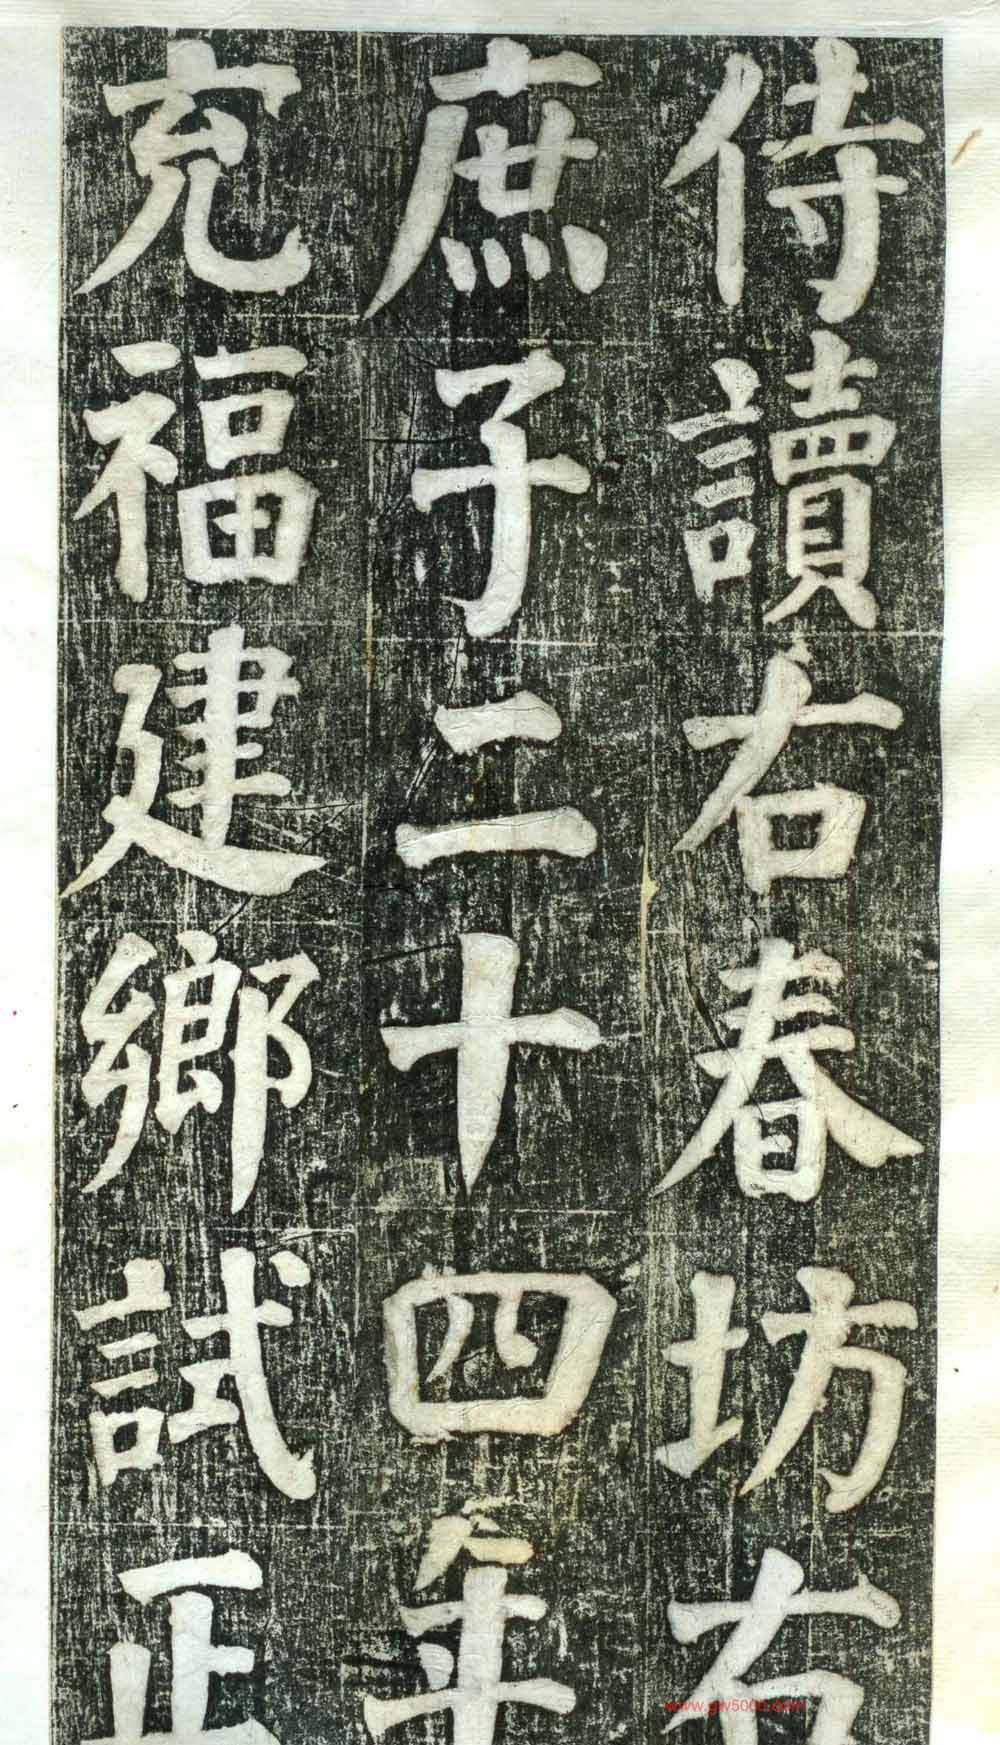 侍讀右春坊右
庶子二十四年
充福建鄉試正
www.gw5000.com